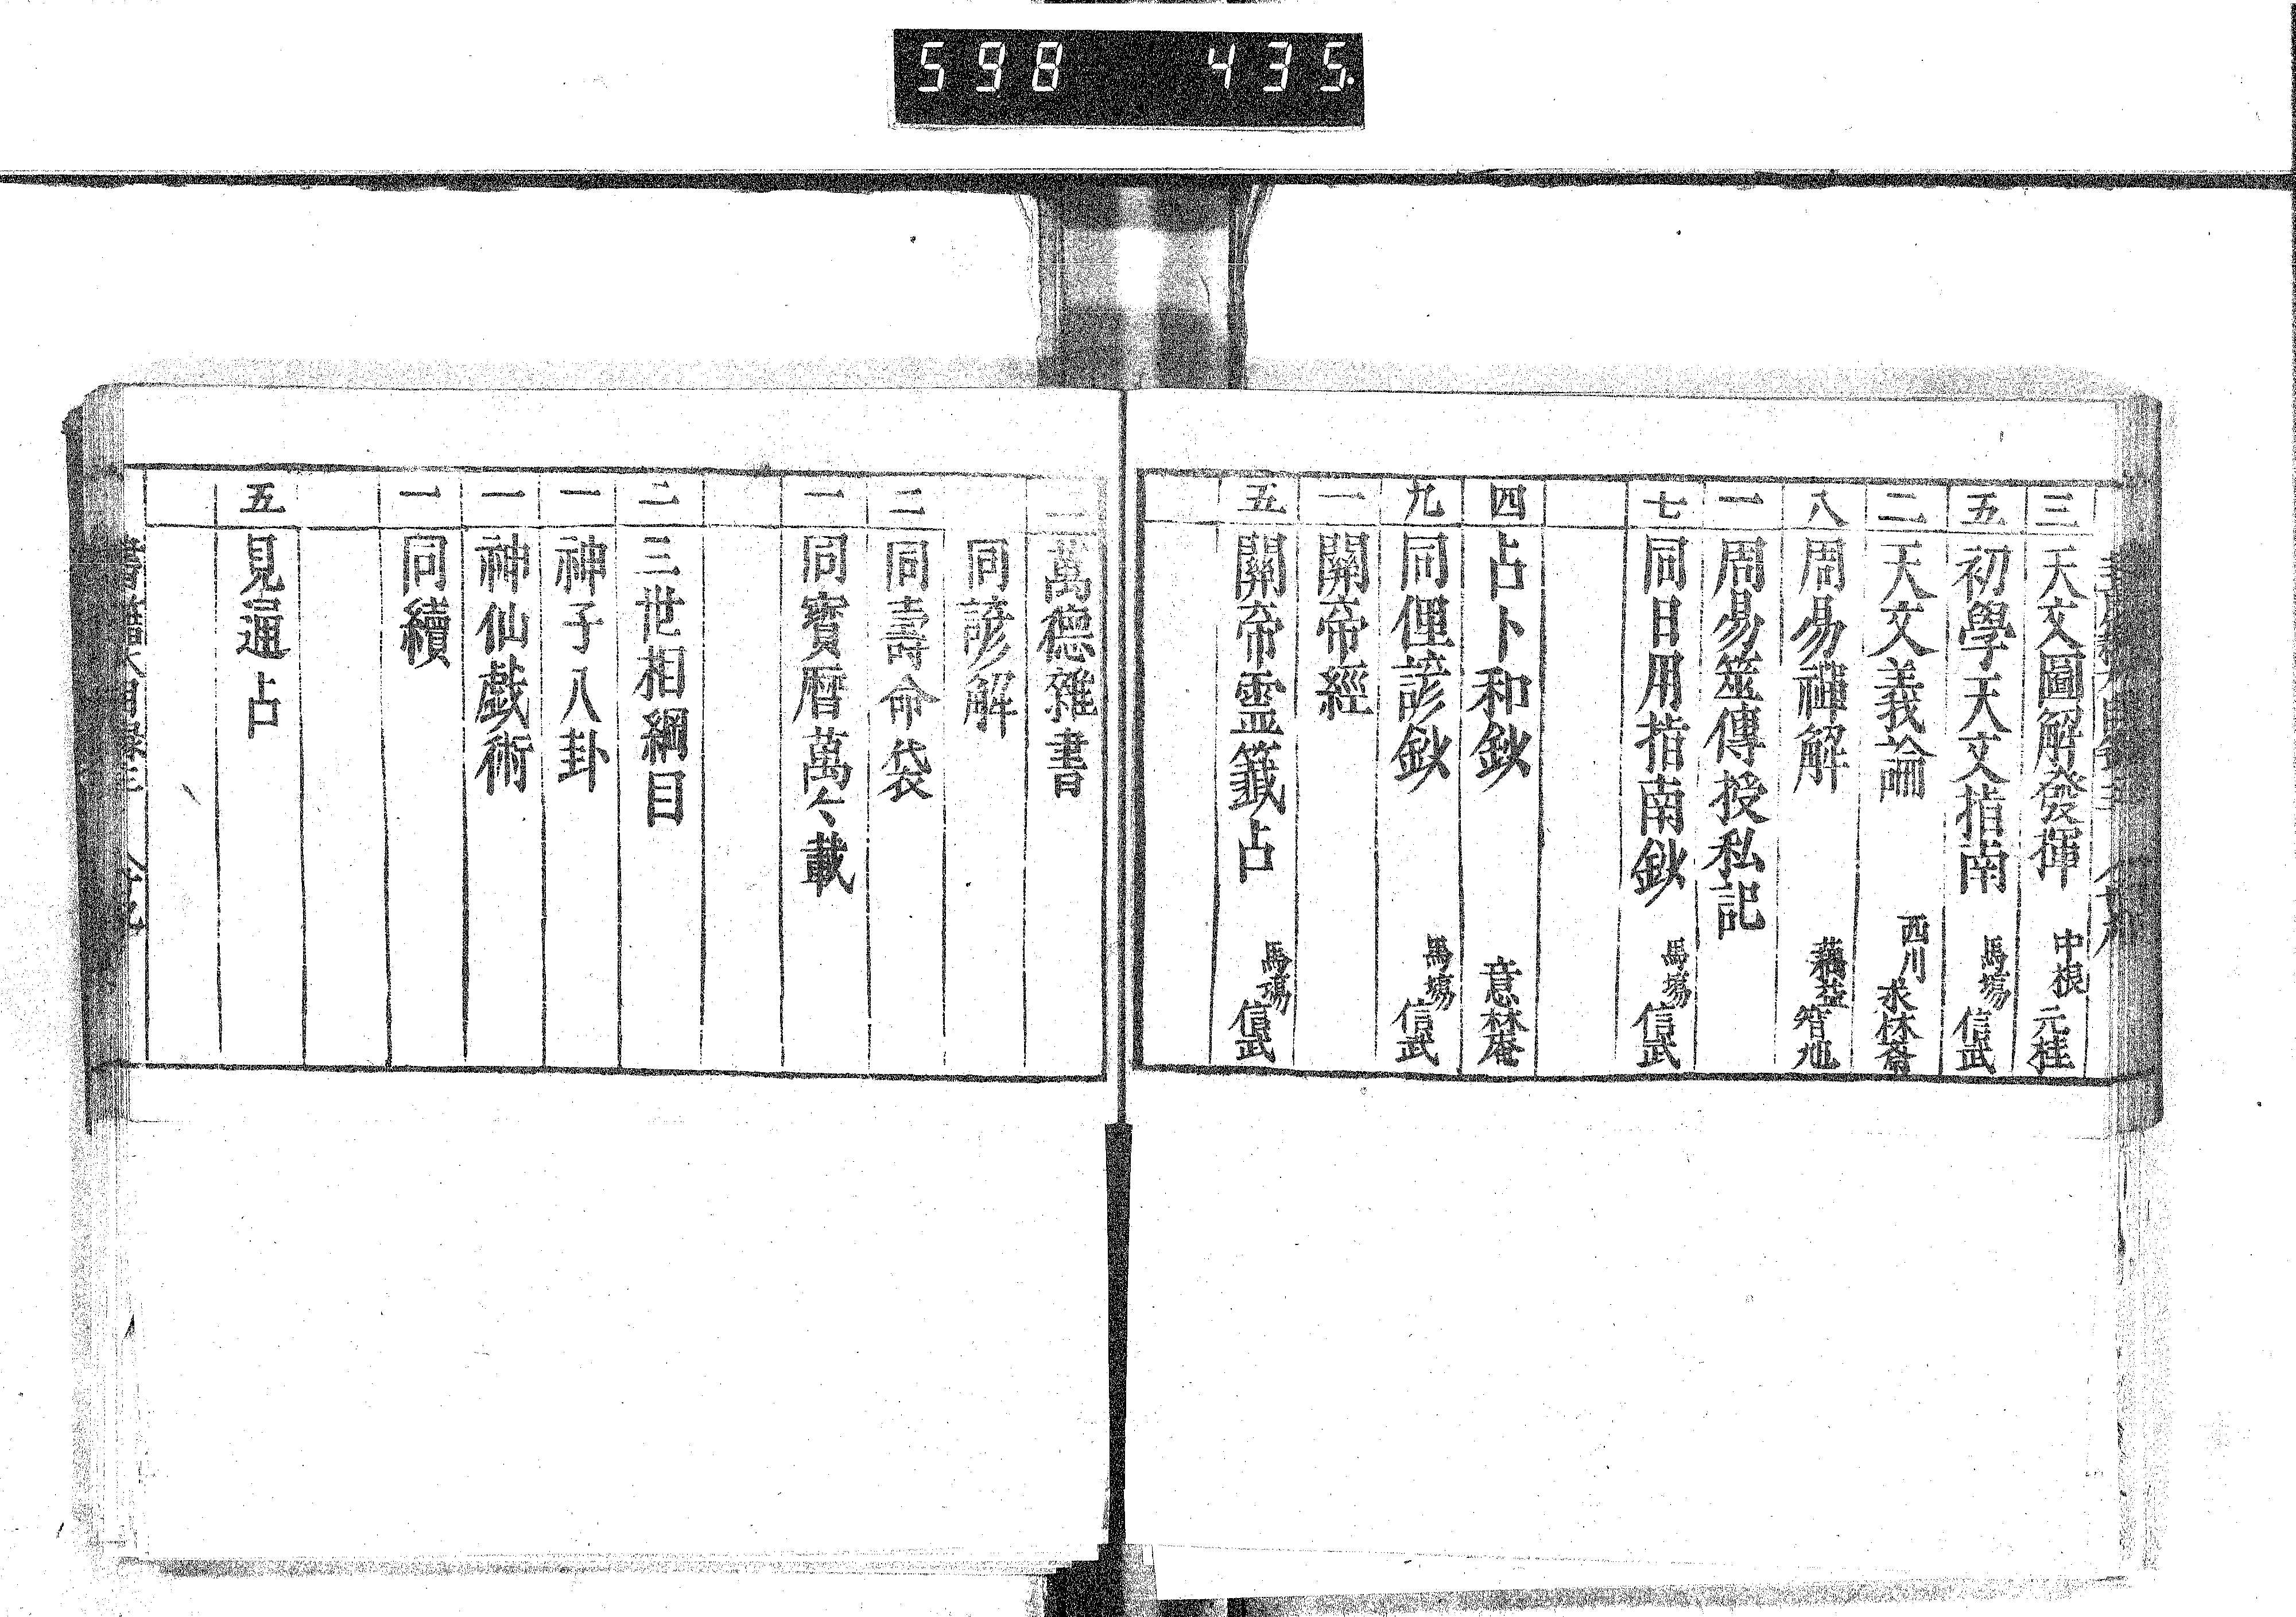 598 435
三 天文圖解發揮 中根 元桂
五 初學天文指南 馬塲 信武
二 天文義論 西川 求林齋
八 周易禪解 藕益 智旭
一 周易筮傳授私記
七 同日用指南鈔 馬塲 信武
四 占卜和鈔 意林菴
九 同俚諺鈔 馬塲 信武
一 關帝經
五 關帝霊籤占 馬塲 信武
二 萬德雜書
同諺解
二 同壽命袋
一 同寳暦萬々載
二 三世相綱目
一 神子八卦
一 神仙戯術
一 同續
五 見通占
書籍大目録三